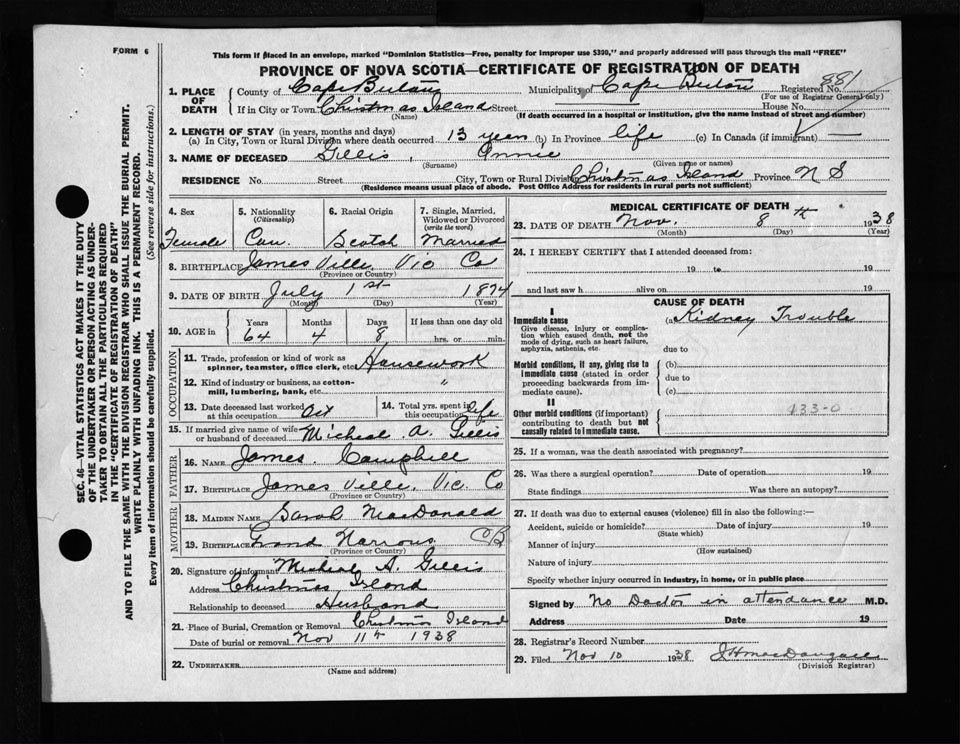 FORM 6
This form if placed in an envelope, marked "Dominion Statistics—Free, penalty for improper use $300," and properly addressed will pass through the mail "FREE"
PROVINCE OF NOVA SCOTIA—CERTIFICATE OF REGISTRATION OF DEATH
1. PLACE OF DEATH
County of Cape Breton Municipality of Cape Breton Registered No. 881
(For use of Registrar General only)
If in City or Town Christmas Island Street House No.
(Name) (If death occurred in a hospital or institution, give the name instead of street and number)
2. LENGTH OF STAY (in years, months and days)
(a) In City, Town or Rural Division where death occurred 13 years (b) In Province life (c) In Canada (if immigrant) —
3. NAME OF DECEASED Gillis, Annie
(Surname) (Given name or names)
RESIDENCE No. Street City, Town or Rural Division Christmas Island Province N S
(Residence means usual place of abode. Post Office Address for residents in rural parts not sufficient)
4. Sex Female
5. Nationality (Citizenship) Can.
6. Racial Origin Scotch
7. Single, Married, Widowed or Divorced (write the word) Married
8. BIRTHPLACE James Ville, Vic Co
(Province or Country)
9. DATE OF BIRTH July 1st 1874
(Month) (Day) (Year)
10. AGE in Years 64 Months 4 Days 8 If less than one day old hrs. or min.
OCCUPATION
11. Trade, profession or kind of work as spinner, teamster, office clerk, etc. Housework
12. Kind of industry or business, as cotton-mill, lumbering, bank, etc. "
13. Date deceased last worked at this occupation
14. Total yrs. spent in this occupation life
15. If married give name of wife or husband of deceased Micheal A. Gillis
FATHER
16. NAME James Campbell
17. BIRTHPLACE James Ville, Vic. Co
(Province or Country)
MOTHER
18. MAIDEN NAME Sarah MacDonald
19. BIRTHPLACE Grand Narrows CB
(Province or Country)
20. Signature of informant Micheal A. Gillis
Address Christmas Island
Relationship to deceased Husband
21. Place of Burial, Cremation or Removal Christmas Island
Date of burial or removal Nov 11th 1938
22. UNDERTAKER
(Name and address)
MEDICAL CERTIFICATE OF DEATH
23. DATE OF DEATH Nov. 8th 1938
(Month) (Day) (Year)
24. I HEREBY CERTIFY that I attended deceased from:
19 to 19
and last saw h alive on 19
CAUSE OF DEATH
I
Immediate cause (a) Kidney Trouble
Give disease, injury or complication which caused death, not the mode of dying, such as heart failure, asphyxia, asthenia, etc.
due to
Morbid conditions, if any, giving rise to immediate cause (stated in order proceeding backwards from immediate cause).
(b)
due to
(c)
II
Other morbid conditions (if important) contributing to death but not causally related to immediate cause.
133-0
25. If a woman, was the death associated with pregnancy?
26. Was there a surgical operation? Date of operation 19
State findings Was there an autopsy?
27. If death was due to external causes (violence) fill in also the following:—
Accident, suicide or homicide? Date of injury 19
(State which)
Manner of injury
(How sustained)
Nature of injury
Specify whether injury occurred in industry, in home, or in public place
Signed by No Doctor in attendance M.D.
Address Date 19
28. Registrar's Record Number
29. Filed Nov 10 1938 J H MacDougall
(Division Registrar)
SEC. 46—VITAL STATISTICS ACT MAKES IT THE DUTY
OF THE UNDERTAKER OR PERSON ACTING AS UNDER-
TAKER TO OBTAIN ALL THE PARTICULARS REQUIRED
IN THE "CERTIFICATE OF REGISTRATION OF DEATH"
AND TO FILE THE SAME WITH THE DIVISION REGISTRAR WHO SHALL ISSUE THE BURIAL PERMIT.
WRITE PLAINLY WITH UNFADING INK. THIS IS A PERMANENT RECORD.
Every item of information should be carefully supplied. (See reverse side for instructions.)